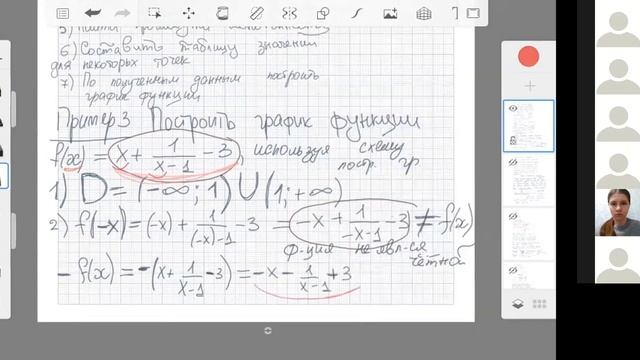 5) Найти
6) Составить таблицу значений
для некоторых точек
7) По полученным данным построить
график функции
Пример 3 Построить график функции
f(x) = x + 1/(x-1) - 3, используя схему
постр. гр
1) D = (-∞; 1) ∪ (1; +∞)
2) f(-x) = (-x) + 1/((-x)-1) - 3 = -x + 1/(-x-1) - 3 ≠ f(x)
ф-ция не явл-ся
чётной
- f(x) = -(x + 1/(x-1) - 3) = -x - 1/(x-1) + 3